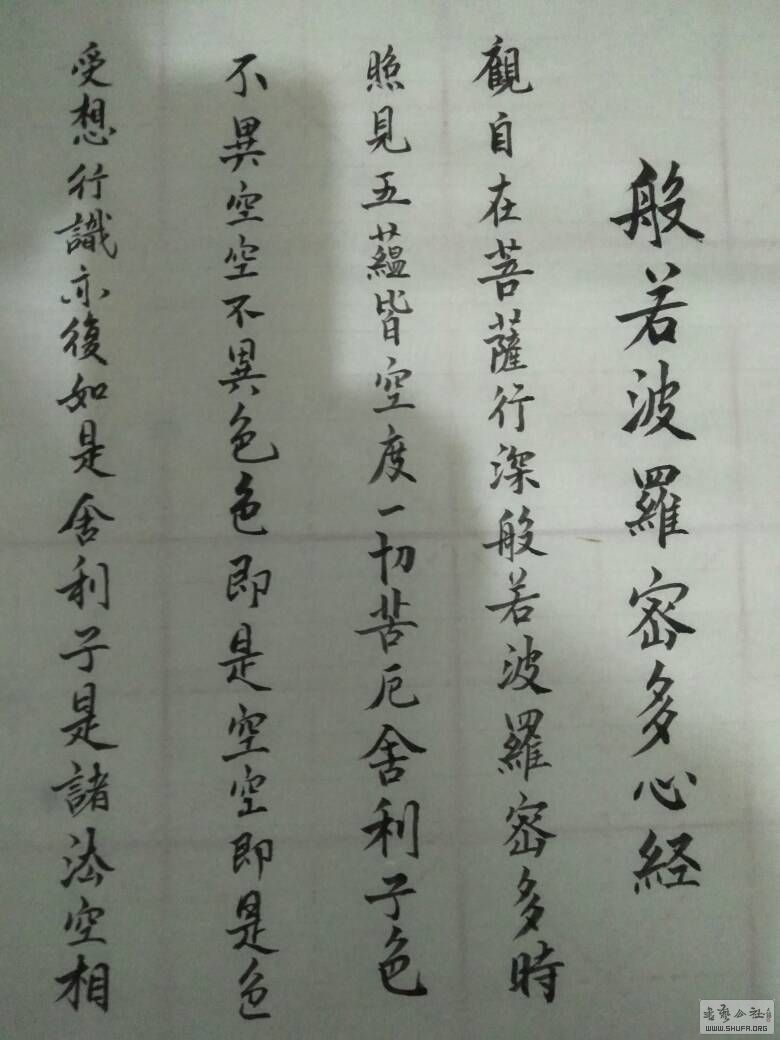 般若波羅密多心経
觀自在菩薩行深般若波羅密多時
照見五蘊皆空度一切苦厄舍利子色
不異空空不異色色即是空空即是色
受想行識亦復如是舍利子是諸法空相
書藝公社
WWW.SHUFA.ORG